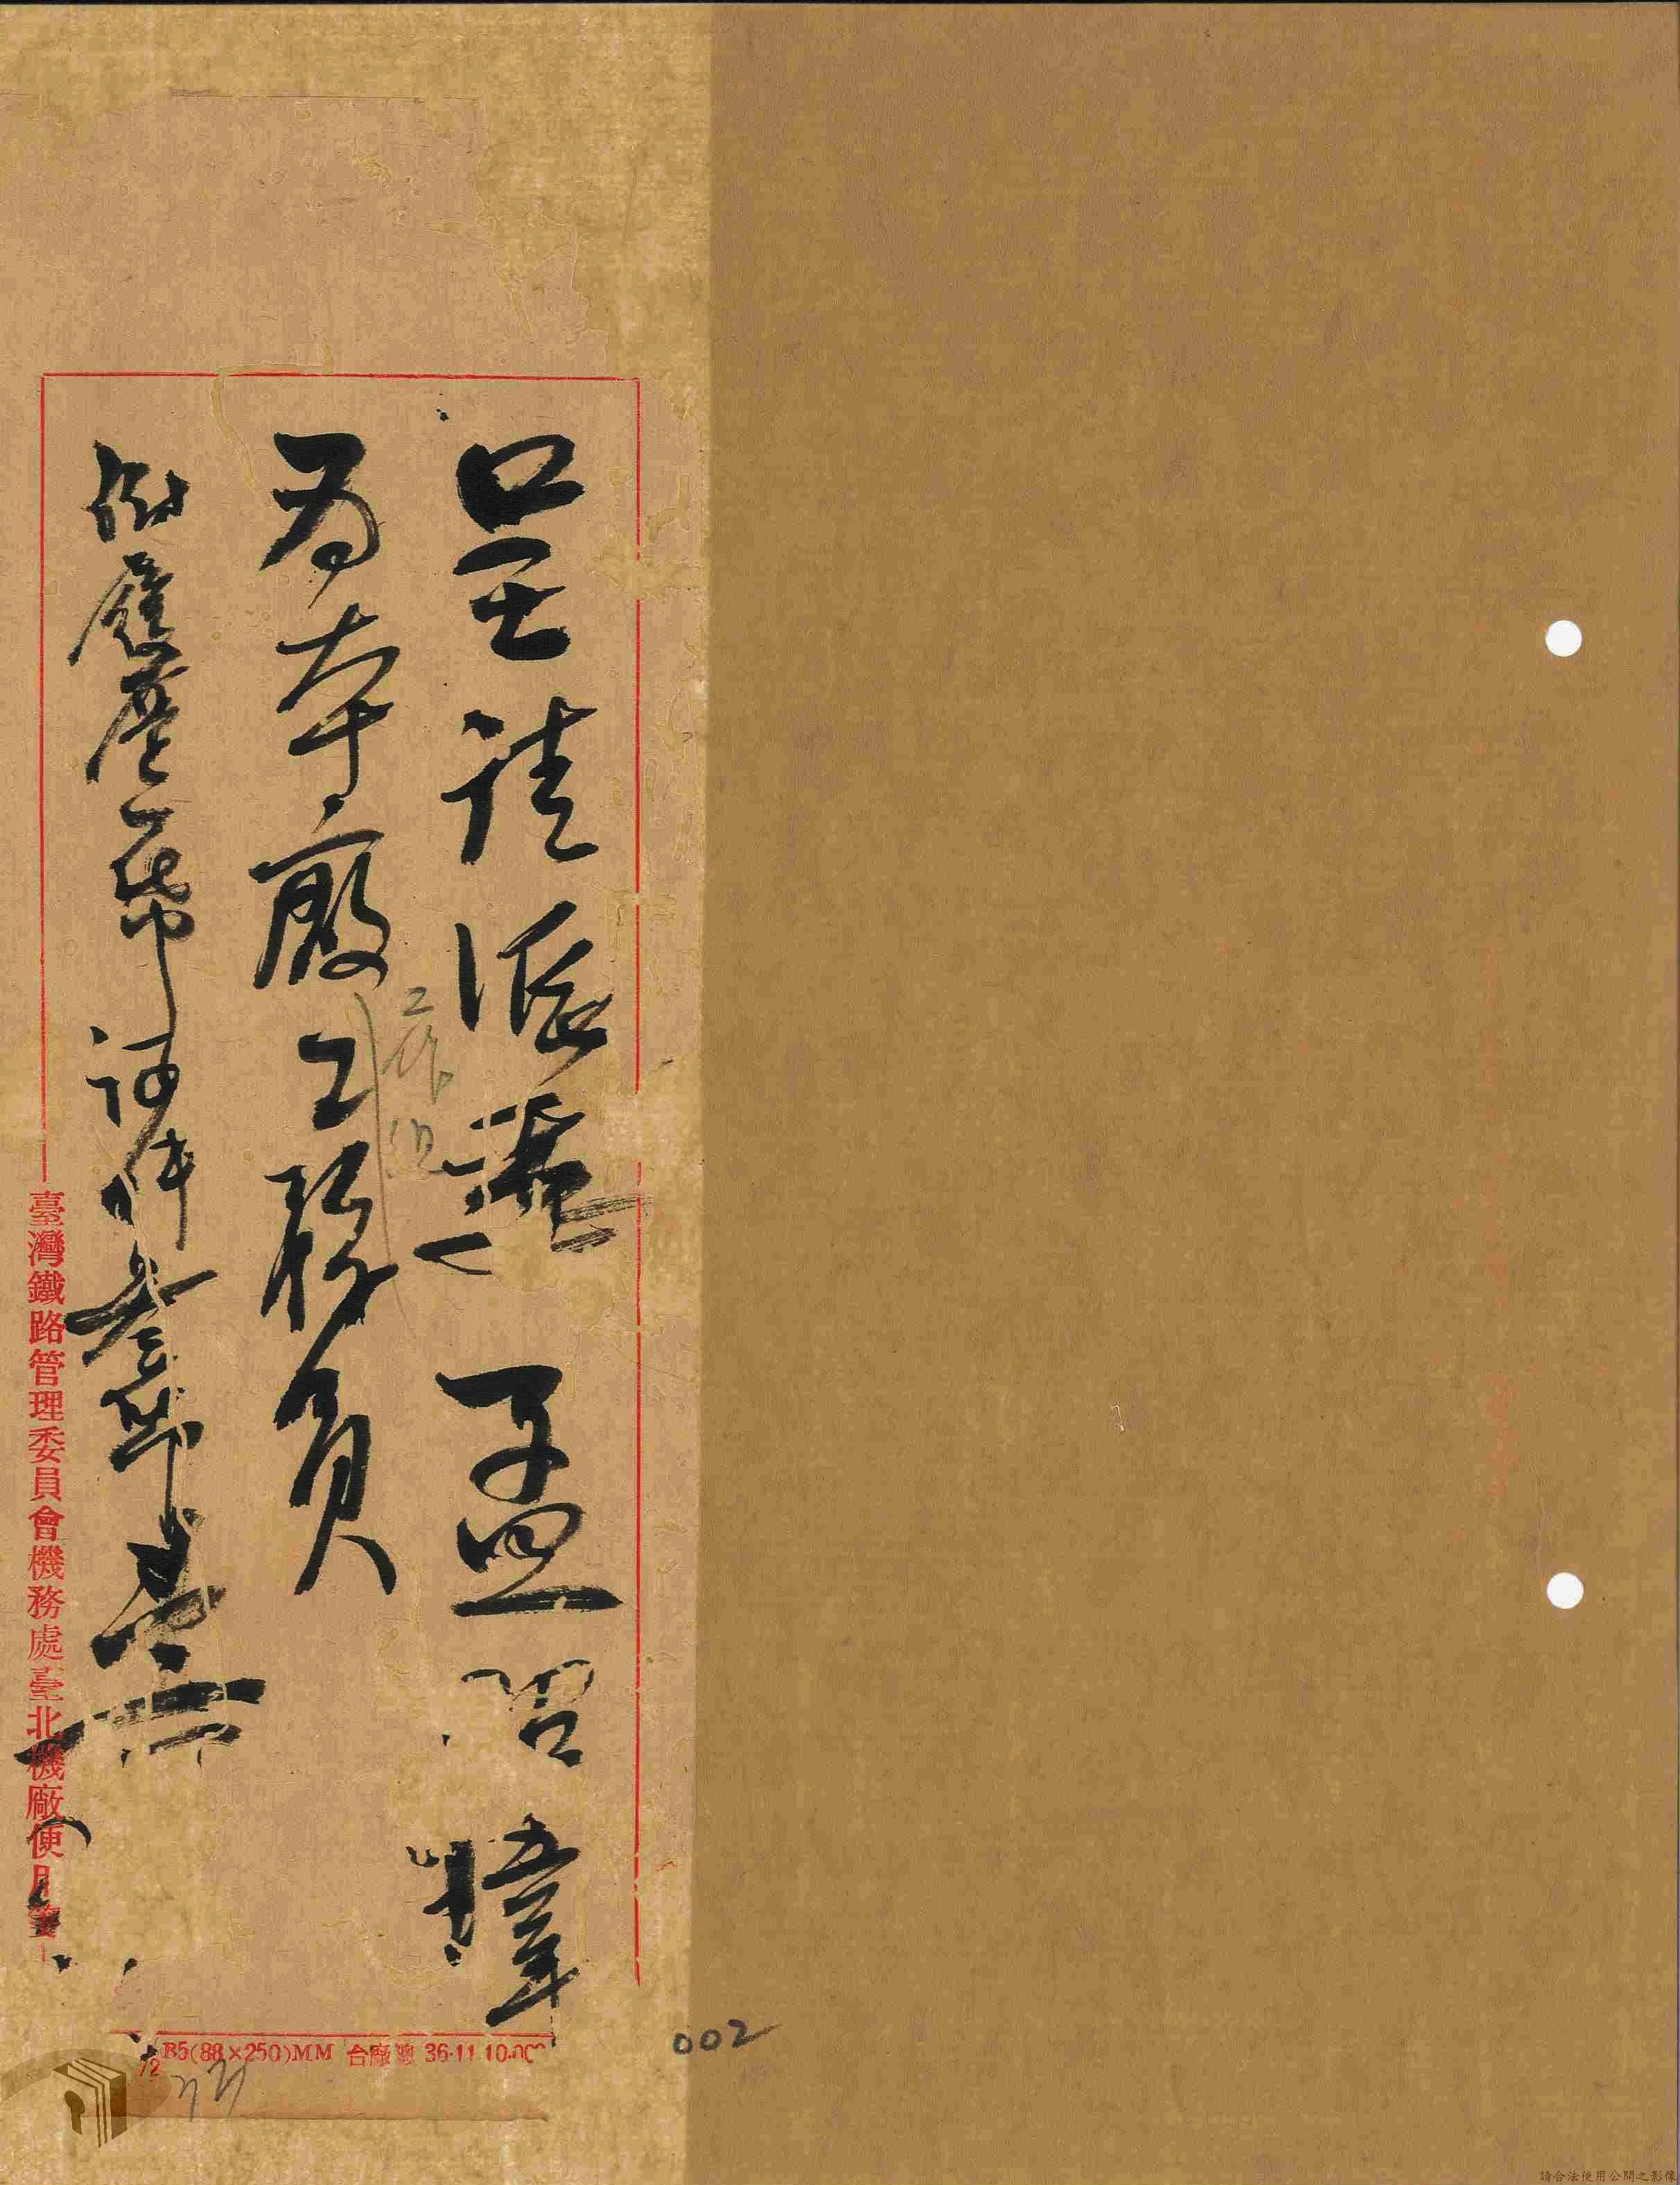 呈請派潘孟昭暐
為本廠工務員
工作組
附履歷一帋 証件叁帋
臺灣鐵路管理委員會機務處臺北機廠便用箋
B5(88×250)MM 台廠 36·11 10.00
002
請合法使用公開之影像